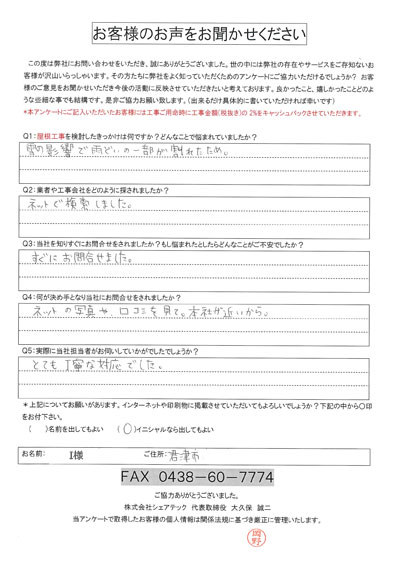 お客様のお声をお聞かせください
この度は弊社にお問い合わせをいただき、誠にありがとうございます。世の中には弊社の存在やサービスをご存知ないお
客様が沢山いらっしゃいます。その方たちに弊社をよく知っていただくためのアンケートにご協力いただけるでしょうか？ お客
様のご意見をお聞かせいただき今後の活動に反映させていただきたいと考えております。良かったこと、嬉しかったことどのよ
うな些細な事でも結構です。是非ご協力お願い致します。（出来るだけ具体的に書いていただければ幸いです）
*本アンケートにご記入いただいたお客様には工事ご用命時に工事金額(税抜き)の 2%をキャッシュバックさせていただきます。
Q1：屋根工事を検討したきっかけは何ですか？どんなことで悩まれていましたか？
雪の影響で雨どいの一部が割れたため。
Q2：業者や工事会社をどのように探されましたか？
ネットで検索しました。
Q3：当社を知りすぐにお問合せをされましたか？もし悩まれたとしたらどんなことがご不安でしたか？
すぐにお問合せました。
Q4：何が決め手となり当社にお問合せをされましたか？
ネットの写真や口コミを見て。本社が近いから。
Q5：実際に当社担当者がお伺いしていかがでしたでしょうか？
とても丁寧な対応でした。
＊上記についてお願いがあります。インターネットや印刷物に掲載させていただいてもよろしいでしょうか？下記の中から〇印
をお付下さい。
(　　)名前を出してもよい　(〇)イニシャルなら出してもよい
お名前：　I様　ご住所：　君津市
FAX 0438-60-7774
ご協力ありがとうございました。
株式会社シェアテック 代表取締役 大久保 誠二
当アンケートで取得したお客様の個人情報は関係法規に基づき厳正に管理いたします。
岡野